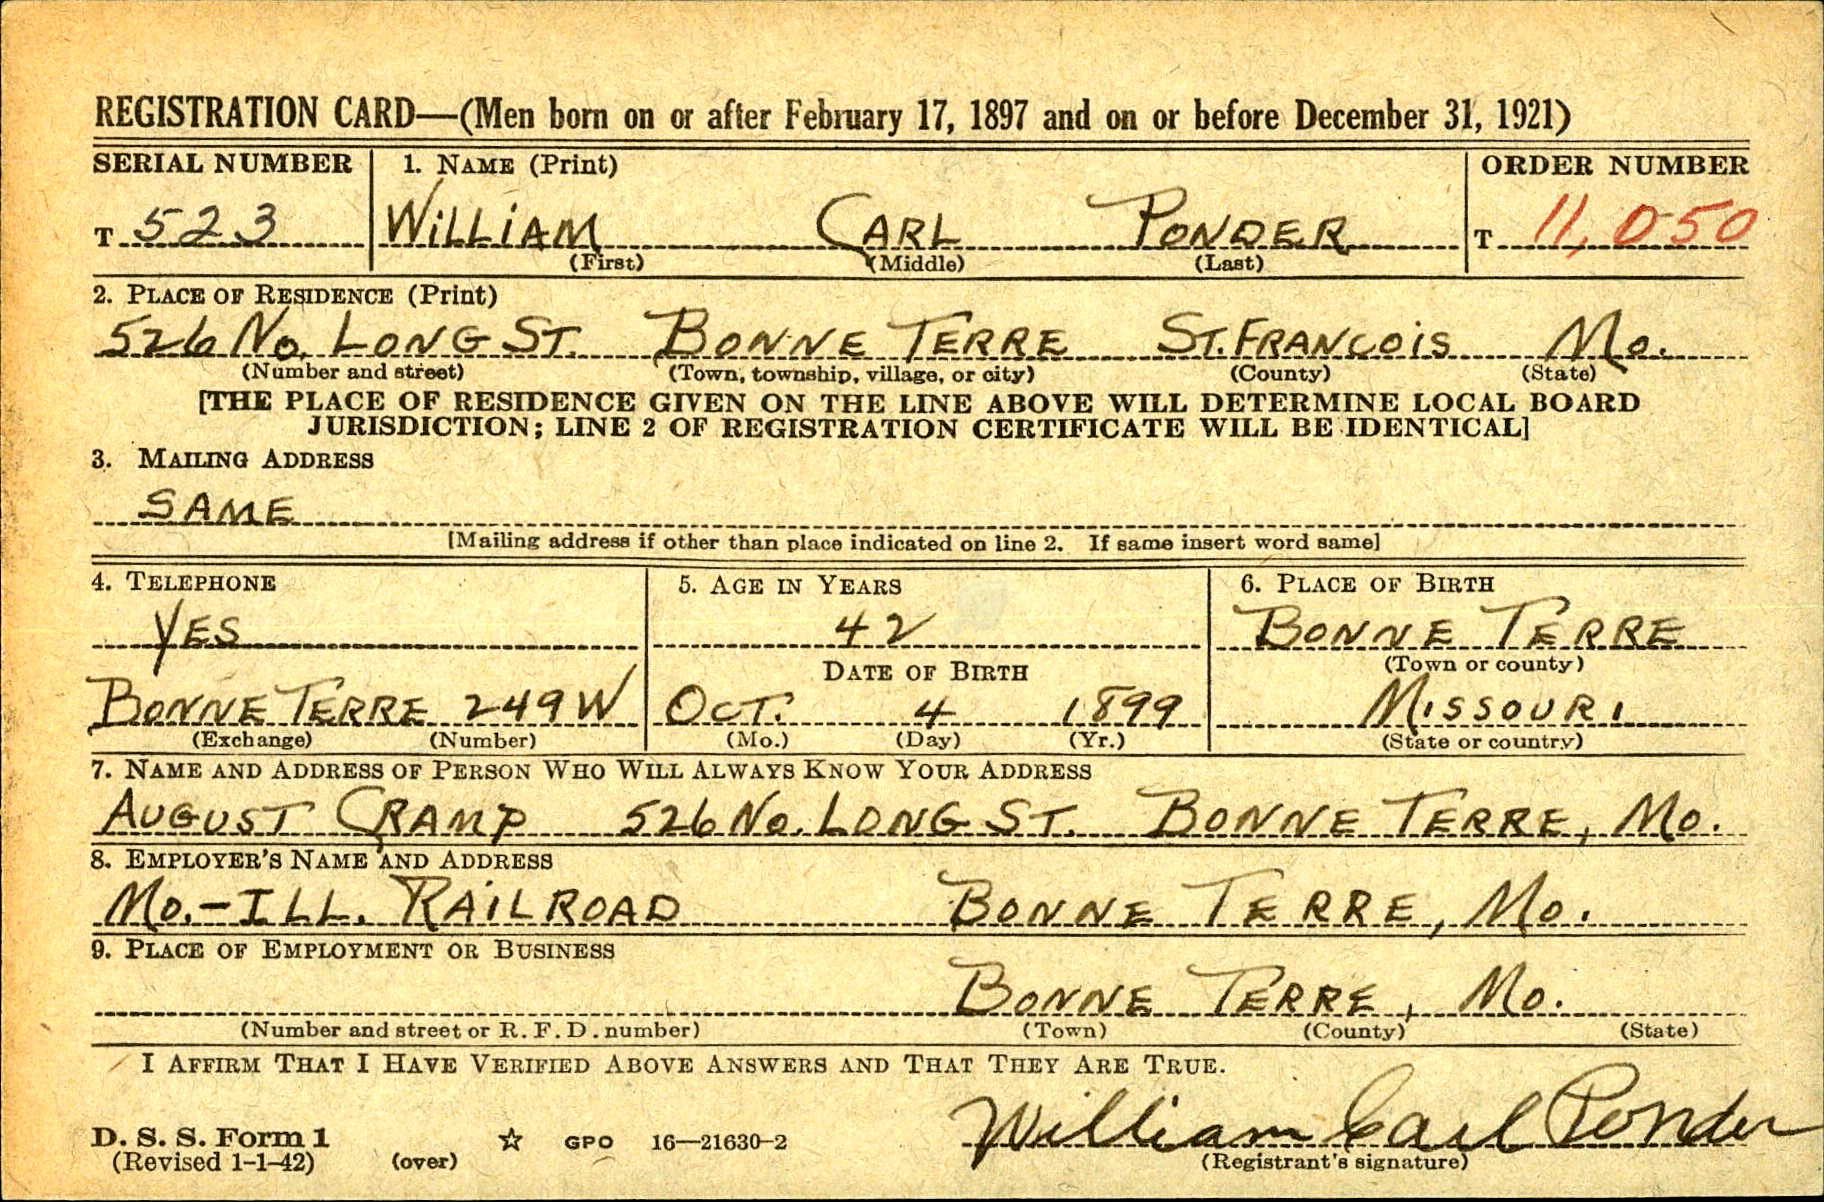 REGISTRATION CARD—(Men born on or after February 17, 1897 and on or before December 31, 1921)
SERIAL NUMBER 1. NAME (Print) ORDER NUMBER
T 523 WILLIAM CARL PONDER T 11,050
(First) (Middle) (Last)
2. PLACE OF RESIDENCE (Print)
526 No. LONG ST. BONNE TERRE ST. FRANCOIS Mo.
(Number and street) (Town, township, village, or city) (County) (State)
[THE PLACE OF RESIDENCE GIVEN ON THE LINE ABOVE WILL DETERMINE LOCAL BOARD
JURISDICTION; LINE 2 OF REGISTRATION CERTIFICATE WILL BE IDENTICAL]
3. MAILING ADDRESS
SAME
[Mailing address if other than place indicated on line 2. If same insert word same]
4. TELEPHONE 5. AGE IN YEARS 6. PLACE OF BIRTH
YES 42 BONNE TERRE
DATE OF BIRTH (Town or county)
BONNE TERRE 249W OCT. 4 1899 MISSOURI
(Exchange) (Number) (Mo.) (Day) (Yr.) (State or country)
7. NAME AND ADDRESS OF PERSON WHO WILL ALWAYS KNOW YOUR ADDRESS
AUGUST CRAMP 526 No. LONG ST. BONNE TERRE, Mo.
8. EMPLOYER'S NAME AND ADDRESS
Mo.-ILL. RAILROAD BONNE TERRE, Mo.
9. PLACE OF EMPLOYMENT OR BUSINESS
BONNE TERRE, Mo.
(Number and street or R. F. D. number) (Town) (County) (State)
I AFFIRM THAT I HAVE VERIFIED ABOVE ANSWERS AND THAT THEY ARE TRUE.
William Carl Ponder
D. S. S. Form 1 ☆ GPO 16—21630-2
(Revised 1-1-42) (over) (Registrant's signature)